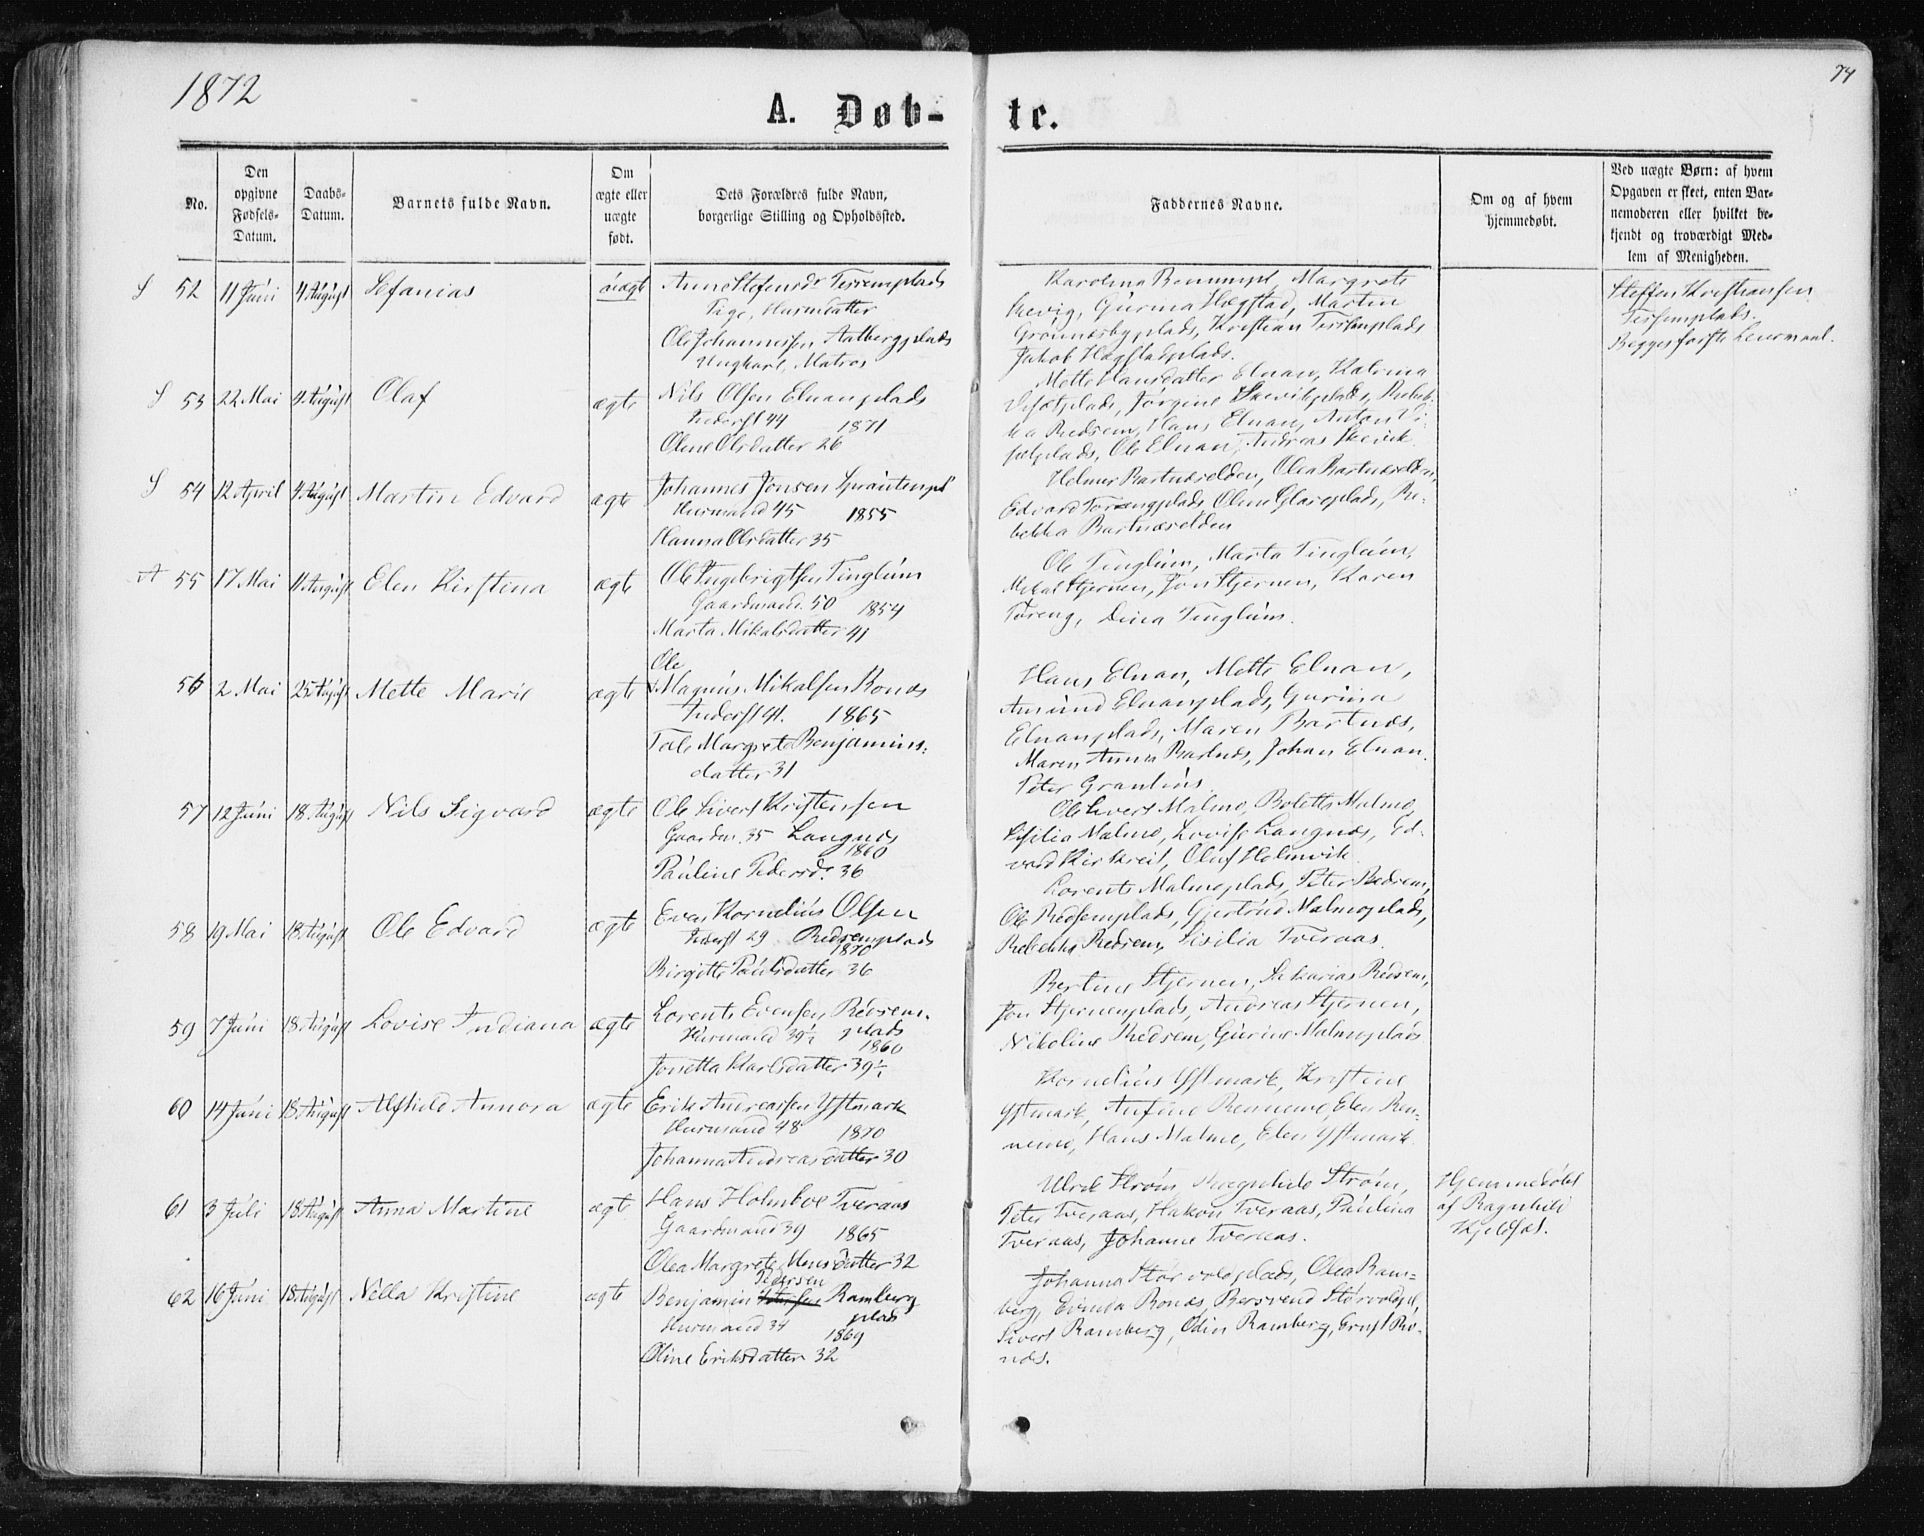 1872
74
A. Døb-
te.
No.
Den opgivne Fødsels-Datum.
Daabs-Datum.
Barnets fulde Navn.
Om ægte eller uægte født.
Dets Forældres fulde Navn, borgerlige Stilling og Opholdssted.
Faddernes Navne.
Om og af hvem hjemmedøbt.
Ved uægte Børn: af hvem Opgaven er skeet, enten Barnemoderen eller hvilket bekjendt og troværdigt Medlem af Menigheden.
S 52 11 Juni 4 August Sefanias uægt
Anne Stefensdr Tessemplads
Pige, Husmdatter
Ole Johannessen Aalbergplads
Ungkarl, Matros
Karolina Margrete
Skevig, Gurina Hægstad, Martin
Grønnesbyplads, Kristian Tessemplads
Jakob Hegstadplads.
Steffen Kristiansen
Tessemplads.
Begges første Leiermaal.
S 53 22 Mai 4 August Olaf ægte
Nils Olsen Elnanplads
Inderst 44 1871
Oline Olsdatter 26
Mette Hansdatter Elnan, Kalvina
Jørgine Skevikplads, Rebek-
ka Redsem, Hans Elnan, Anton
Ole Elnan, Andreas Skevik.
S 54 12 April 4 August Martin Edvard ægte
Johannes Jonsen
Husmand 45 1855
Hanna Olsdatter 35
Helmer Bartnæselden, Olea Bartnæselden,
Edvard Oline Glareplads, Re-
bekka Bartnæselden
A 55 17 Mai 11 August Elen Kirstina ægte
Ole Ingebrigtsen Tinglum
Gaardmand 50 1854
Marta Mikalsdatter 41
Ole Tinglum, Marta Tinglum,
Mikal Stjernen, Jon Stjernen, Karen
Føreng, Dina Tinglum.
56 2 Mai 25 August Mette Marie ægte
Ole
Magnus Mikalsen Bonæs
Inderst 41. 1865
Tale Margrete Benjamins-
datter 31
Hans Elnan, Mette Elnan,
Amund Elnanplads, Gurina
Elnanplads, Maren Bartnæs,
Maren Anna Bartnæs, Johan Elnan.
Peter
57 12 Juni 18 August Nils Sigvard ægte
Ole Sivert Kristensen
Gaardm. 35 Langnæs
1860
Pauline Pedersd. 36
Ole Sivert Malmo, Boletta Malmo,
Sisilia Malmo, Lovise Langnæs, Ed-
vard Kirkreit, Oluf Holmvik.
58 19 Mai 18 August Ole Edvard ægte
Even Kornelius Olsen
Inderst 29 Redsemplads
1870
Birgitte Paulsdatter 36
Lorents Malmoplads, Peter Redsem,
Ole Redsemplads, Gjertrud Malmoplads,
Rebekka Redsem, Sisilia Tveraas.
59 7 Juni 18 August Lovise Indiana ægte
Lorents Evensen Redsem-
Husmand 39½ plads
1860
Jonetta Karlsdatter 39½
Bertine Stjernen, Sakarias Redsem,
Jon Stjernenplads, Andreas Stjernen,
Nikoline Redsem, Gurine Malmoplads
60 14 Juni 18 August Alfhild Annora ægte
Erik Andreassen Ystmark
Husmand 48 1870
Johanna Andreasdatter 30
Kornelius Ystmark, Kristine
Ystmark, Anfine Rennemo, Elen Ren-
nemo, Hans Malmo, Elen Ystmark.
61 3 Juli 18 August Anna Martine ægt
Hans Holmboe Tveraas
Gaardmand 39 1865
Olea Margrete Monsdatter 32
Ulrik Strøm, Ragnhild Strøm,
Peter Tveraas, Hakon Tveraas, Paulina
Tveraas, Johanne Tveraas.
Hjemmedøbt
af Ragnhild
Kjeldsæt.
62 16 Juni 18 August Nella Kristine ægte
Pedersen
Benjamin Ramberg
Husmand 34 plad
1869
Oline Eriksdatter 32
Johanna Størvoldplads, Olea Ram-
berg, Evinda Bonæs, Bersvend Størvoldpl,
Sivert Ramberg, Odin Ramberg, Ernst Bo-
næs.